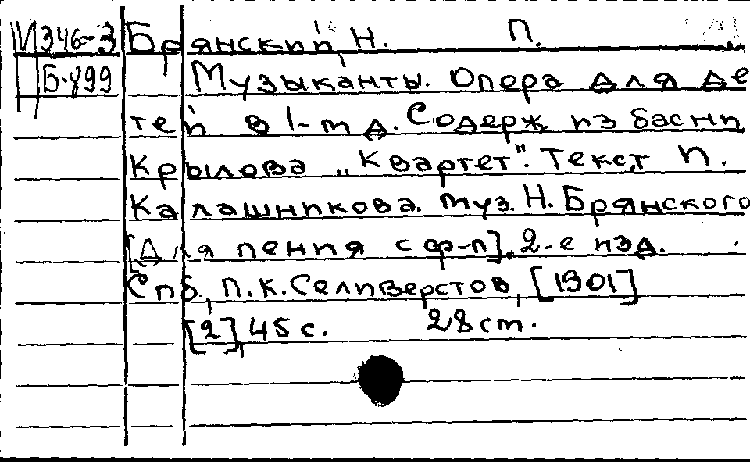 М346-3 Брянский, Н. П.
Б-899 Музыканты. Опера для де
тей в 1-м д. Содерж из басни
Крылова „Квартет". Текст П.
Калашникова. муз. Н. Брянского
[Для пения с ф-п]. 2-е изд.
Спб., П.К. Селиверстов, [1901]
[2], 45 с. 28 cm.